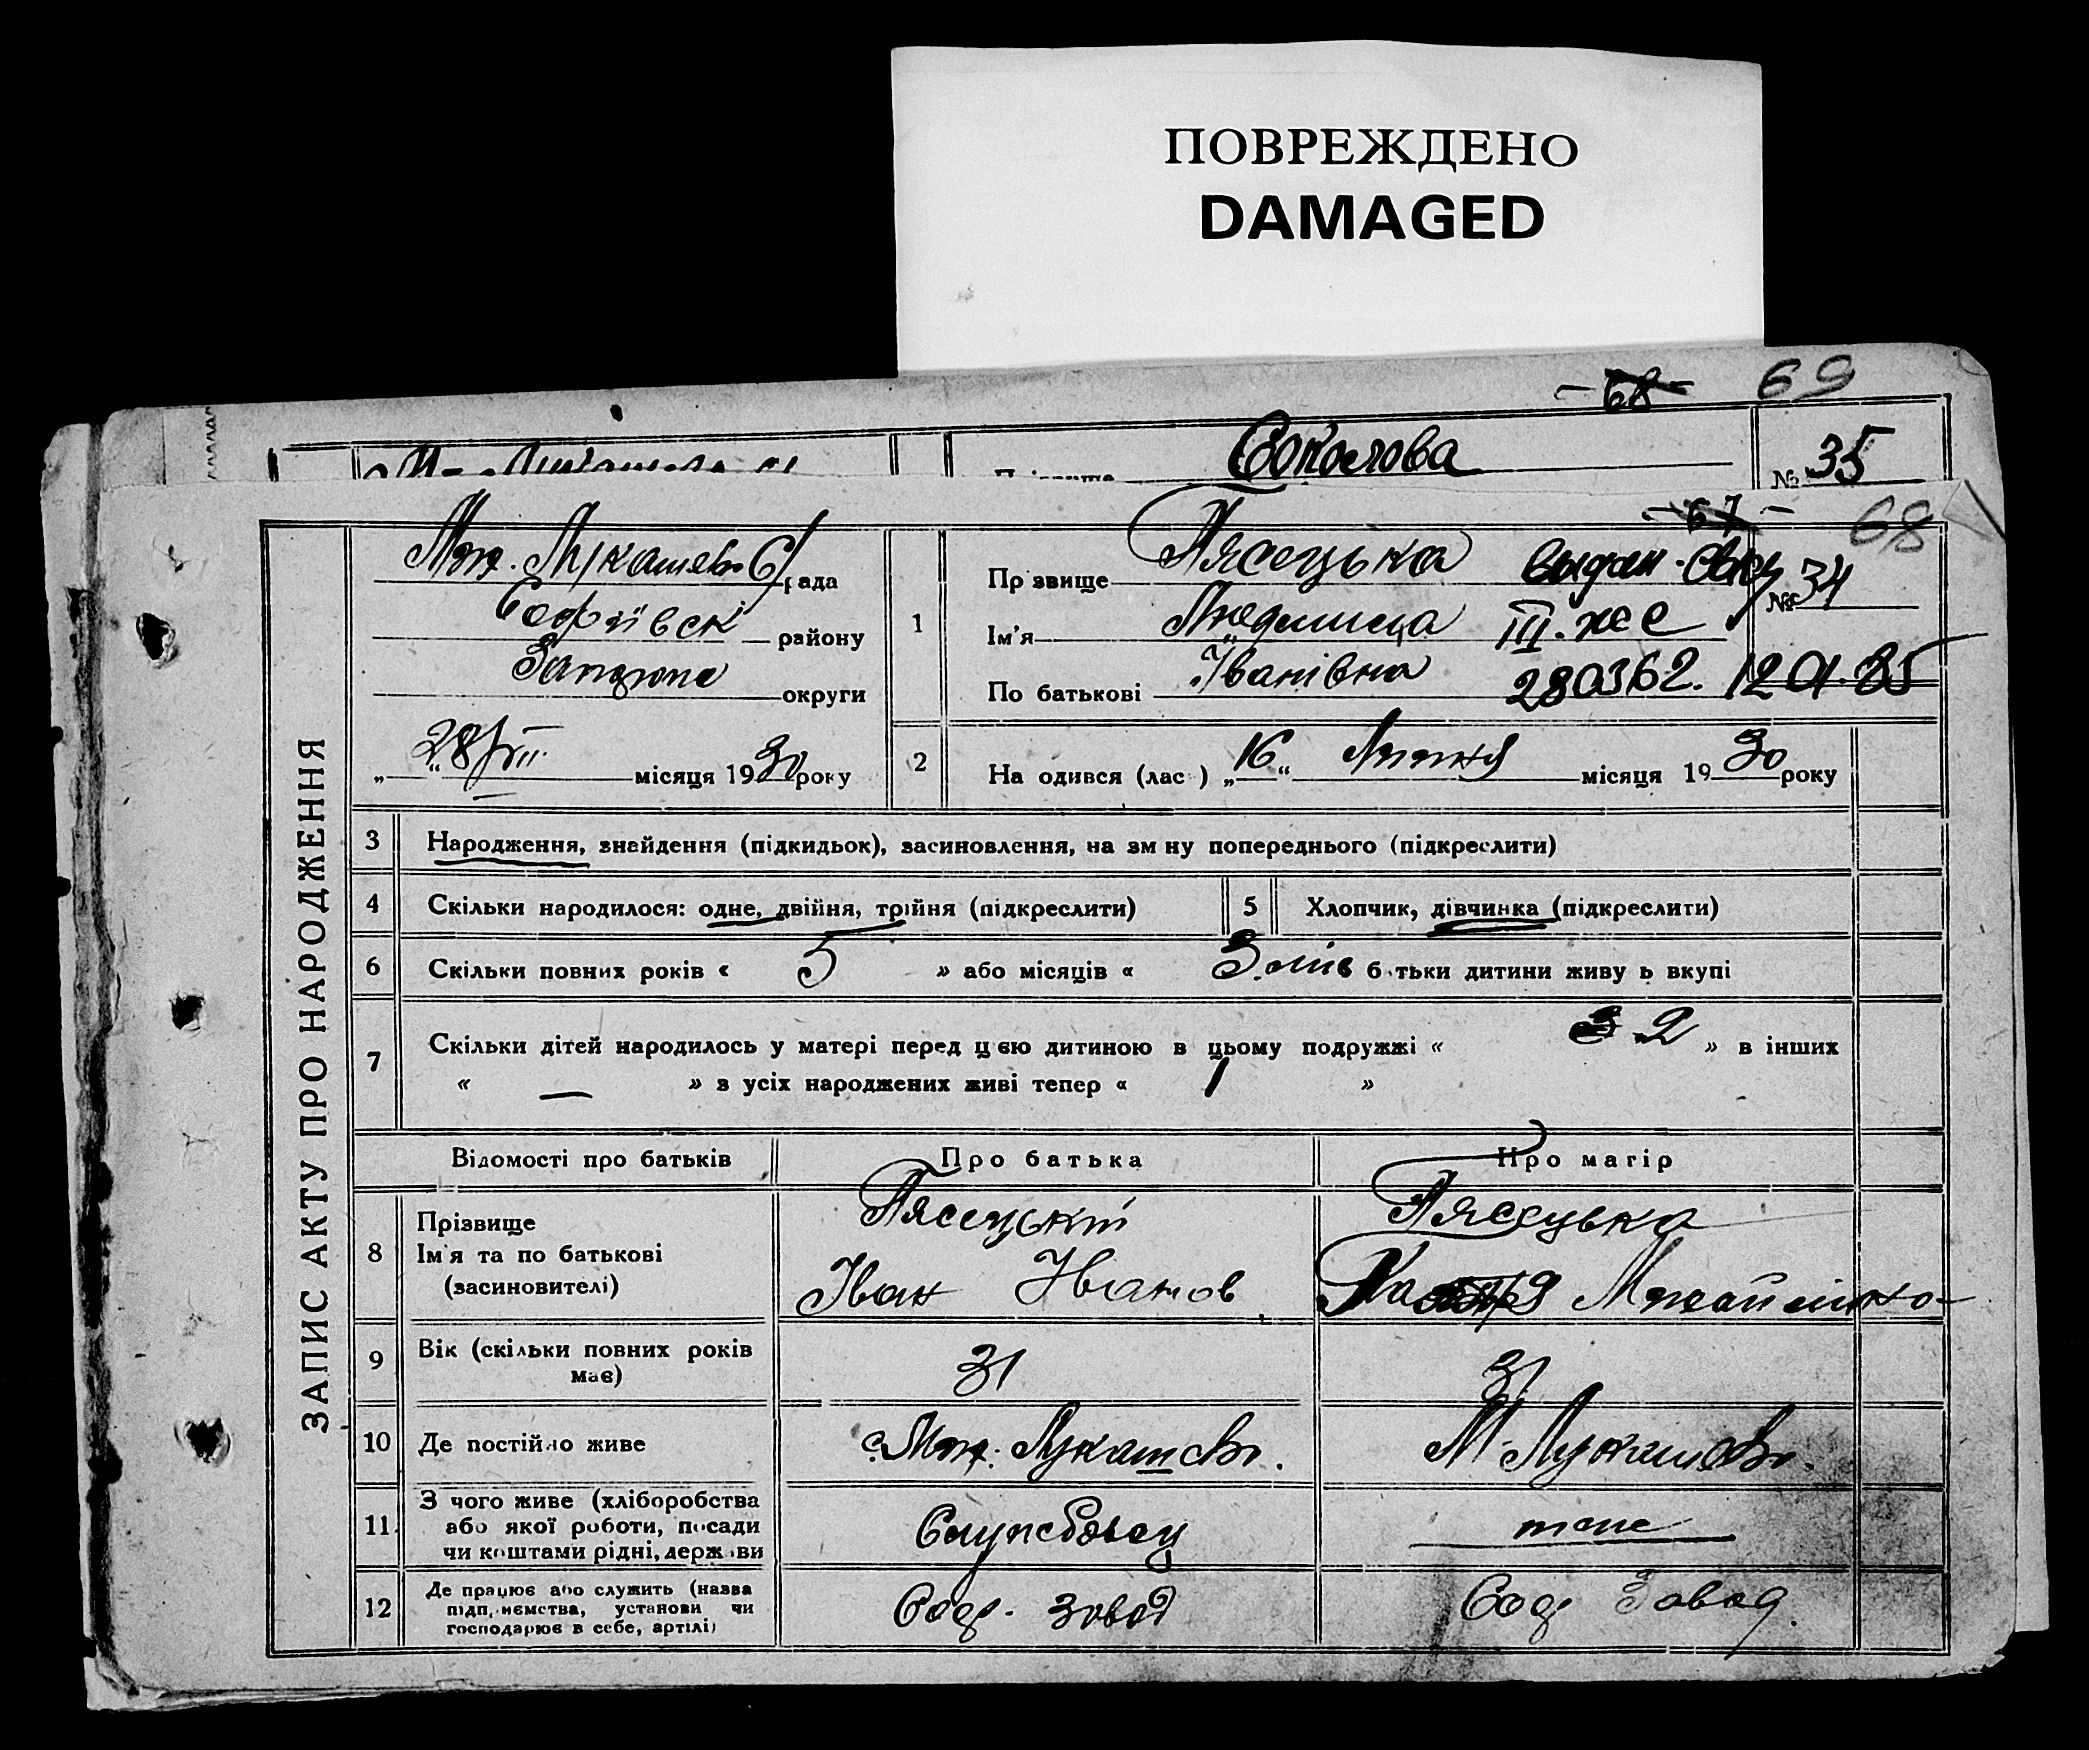 ПОВРЕЖДЕНО
DAMAGED
68 69
Соколова
№ 35
67 68
Мих. Лукашево С/рада
Софіївськ району
Запоріж округи
„28/VII“ місяця 1930 року
1
Пр звище Пясецька
Ім'я Людмила
По батькові Іванівна
выдан. свид
III. же
280362. 12 01. 85
№ 34
2
На одився (лас ) „16“ Липня місяця 1930 року
ЗАПИС АКТУ ПРО НАРОДЖЕННЯ
3 Народження, знайдення (підкидьок), засиновлення, на зм ну попереднього (підкреслити)
4 Скільки народилося: одне, двійня, трійня (підкреслити)
5 Хлопчик, дівчинка (підкреслити)
6 Скільки повних років « 5 » або місяців « 3 міс б тьки дитини живу ь вкупі
7 Скільки дітей народилось у матері перед цєю дитиною в цьому подружжі « 3 2 » в інших
« — » з усіх народжених живі тепер « 1 »
Відомості про батьків Про батька Про матір
8 Прізвище
Ім'я та по батькові
(засиновителі)
Пясецький
Іван Іванов
Пясецька
Михайлівно-
9 Вік (скільки повних років
має)
31 31
10 Де постійно живе с. Мих. Лукашево. М. Лукашево.
11. З чого живе (хліборобства
або якої роботи, посади
чи коштами рідні, держ ви
Службовец
теж
12 Де працює або служить (назва
підп, иємства, установи чи
господарює в себе, артілі)
Соф. завод
Соф завод.